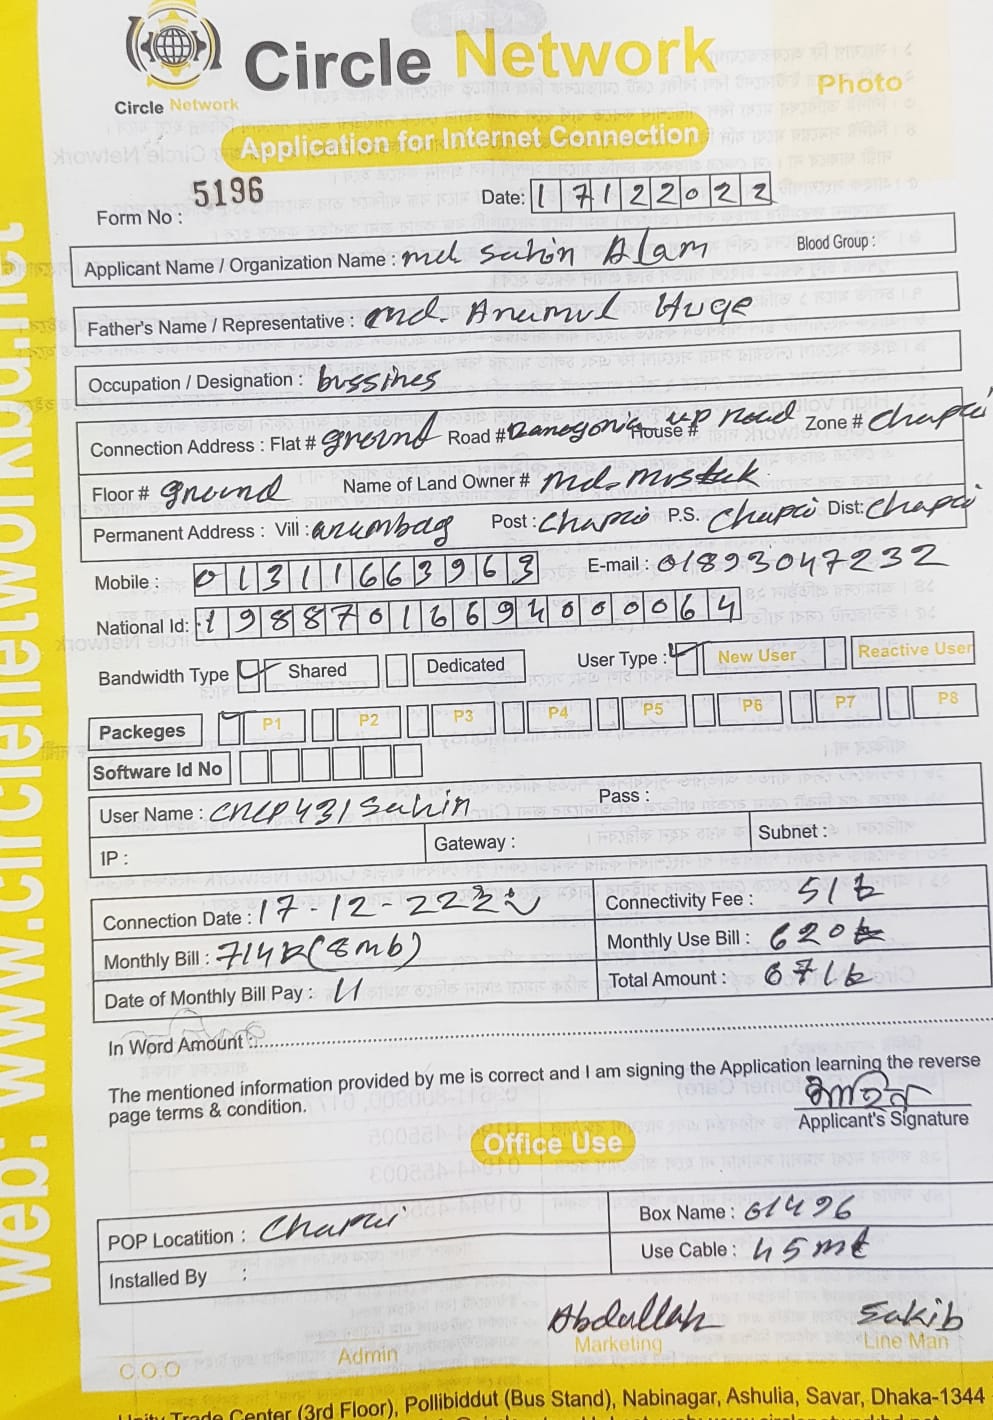 Circle Network
Circle Network
Photo
Application for Internet Connection
Form No : 5196
Date: 17122022
Applicant Name / Organization Name : md sahin Alam Blood Group :
Father's Name / Representative : md. Anamul Huqe
Occupation / Designation : bussines
Connection Address : Flat # ground Road # House # up road Zone #
Floor # ground Name of Land Owner # md. mustak
Permanent Address : Vill : arambag Post : P.S. Dist:
Mobile : 01311663963 E-mail : 01893047232
National Id: 19887016694000064
Bandwidth Type Shared Dedicated User Type : New User Reactive User
Packeges P1 P2 P3 P4 P5 P6 P7 P8
Software Id No
User Name : Pass :
IP : Gateway : Subnet :
Connection Date : 17-12-22 Connectivity Fee :
Monthly Bill : (8mb) Monthly Use Bill :
Date of Monthly Bill Pay : Total Amount :
In Word Amount :
The mentioned information provided by me is correct and I am signing the Application learning the reverse
page terms & condition.
Applicant's Signature
Office Use
POP Locatition : Box Name :
Installed By : Use Cable : 45 mt
Abdullah Sakib
C.O.O Admin Marketing Line Man
Trade Center (3rd Floor), Pollibiddut (Bus Stand), Nabinagar, Ashulia, Savar, Dhaka-1344
web: www.circlenetworkbd.net